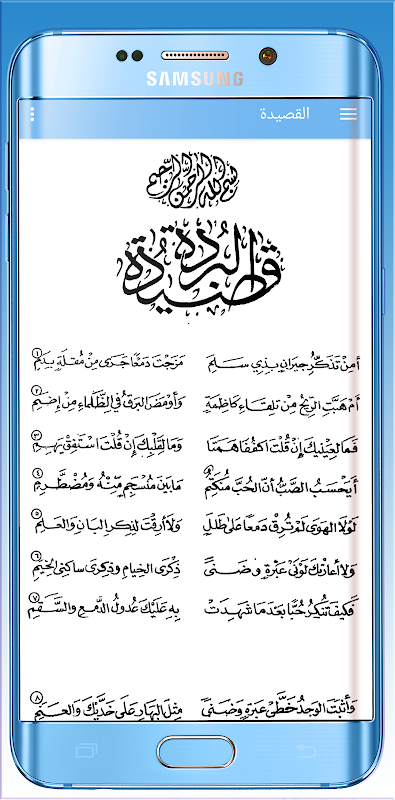 SAMSUNG
القصيدة
بسم الله الرحمن الرحيم
قصيدة البردة
أَمِنْ تَذَكِّرُ جِيرَانٍ بِذِي سَلَمِ مَزَجْتَ دَمْعًا جَرَى مِنْ مُقْلَةٍ بِدَمِ ١
أَمْ هَبَّتِ الرِّيحُ مِنْ تِلْقَاءِ كَاظِمَةٍ وَأَوْمَضَ البَرْقُ فِي الظَّلْمَاءِ مِنْ إِضَمِ ٢
فَمَا لِعَيْنَيْكَ إِنْ قُلْتَ اكْفُفَا هَمَتَا وَمَا لِقَلْبِكَ إِنْ قُلْتَ اسْتَفِقْ يَهِمِ ٣
أَيَحْسَبُ الصَّبُّ أَنَّ الحُبَّ مُنْكَتِمٌ مَا بَيْنَ مُنْسَجِمٍ مِنْهُ وَمُضْطَرِمِ ٤
لَوْلَا الهَوَى لَمْ تُرِقْ دَمْعًا عَلَى طَلَلٍ وَلَا أَرِقْتَ لِذِكْرِ البَانِ وَالعَلَمِ ٥
وَلَا أَعَارَتْكَ لَوْنَيْ عَبْرَةٍ وَضَنًى ذِكْرَى الخِيَامِ وَذِكْرَى سَاكِنِي الخِيَمِ ٦
فَكَيْفَ تُنْكِرُ حُبًّا بَعْدَ مَا شَهِدَتْ بِهِ عَلَيْكَ عُدُولُ الدَّمْعِ وَالسَّقَمِ ٧
وَأَثْبَتَ الوَجْدُ خَطَّيْ عَبْرَةٍ وَضَنًى مِثْلَ البَهَارِ عَلَى خَدَّيْكَ وَالعَنَمِ ٨